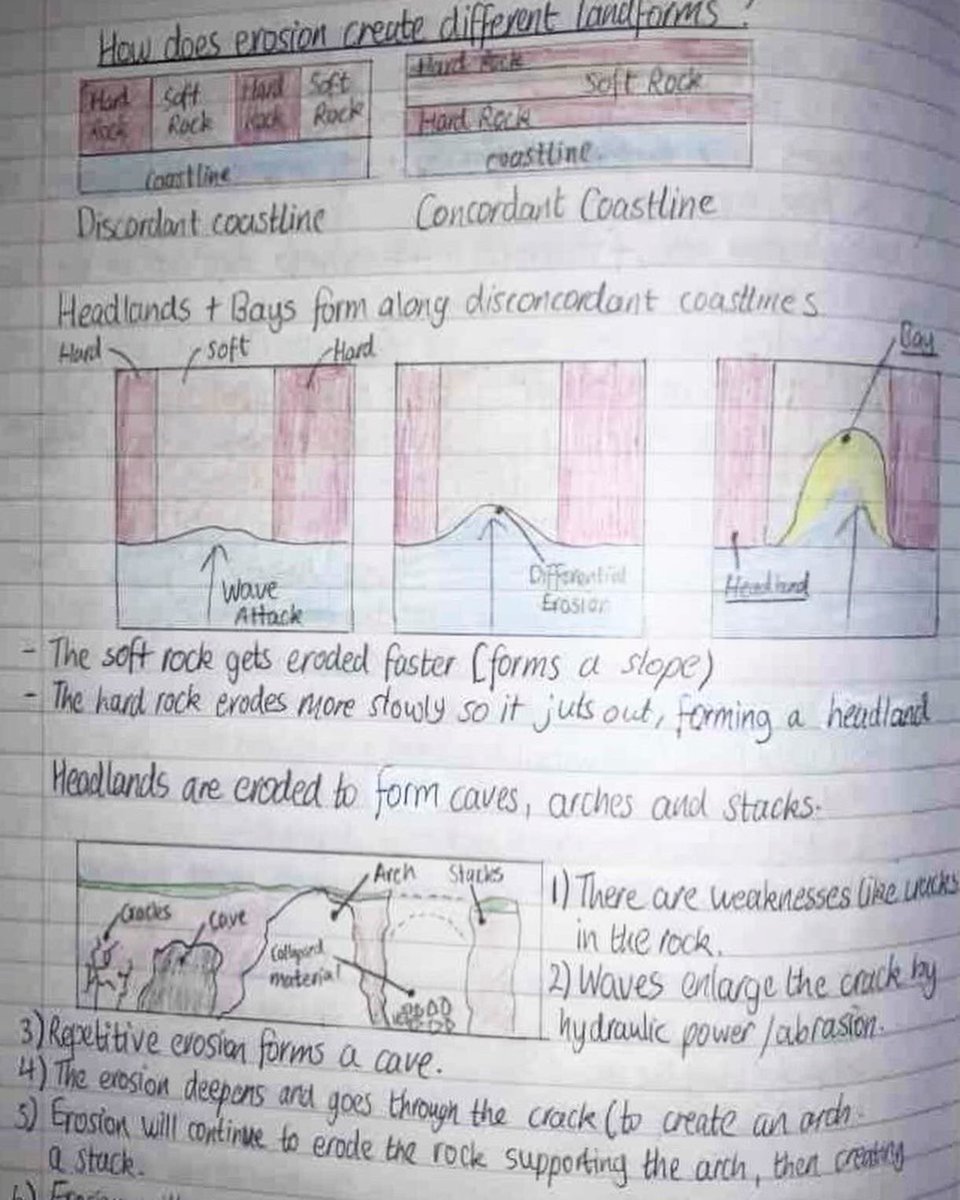 How does erosion create different landforms?
Hard Rock
Soft Rock
Hard Rock
Soft Rock
coastline
Discordant coastline
Hard Rock
Soft Rock
Hard Rock
coastline
Concordant Coastline
Headlands + Bays form along disconcordant coastlines
Hard
soft
Hard
Wave
Attack
Differential
Erosion
Bay
Headland
- The soft rock gets eroded faster (forms a slope)
- The hard rock erodes more slowly so it juts out, forming a headland
Headlands are eroded to form caves, arches and stacks.
Cracks
Cave
Arch
Stacks
Collapsed
material
1) There are weaknesses like cracks
in the rock.
2) Waves enlarge the crack by
hydraulic power/abrasion.
3) Repetitive erosion forms a cave.
4) The erosion deepens and goes through the crack (to create an arch.
5) Erosion will continue to erode the rock supporting the arch, then creating
a stack.
6)